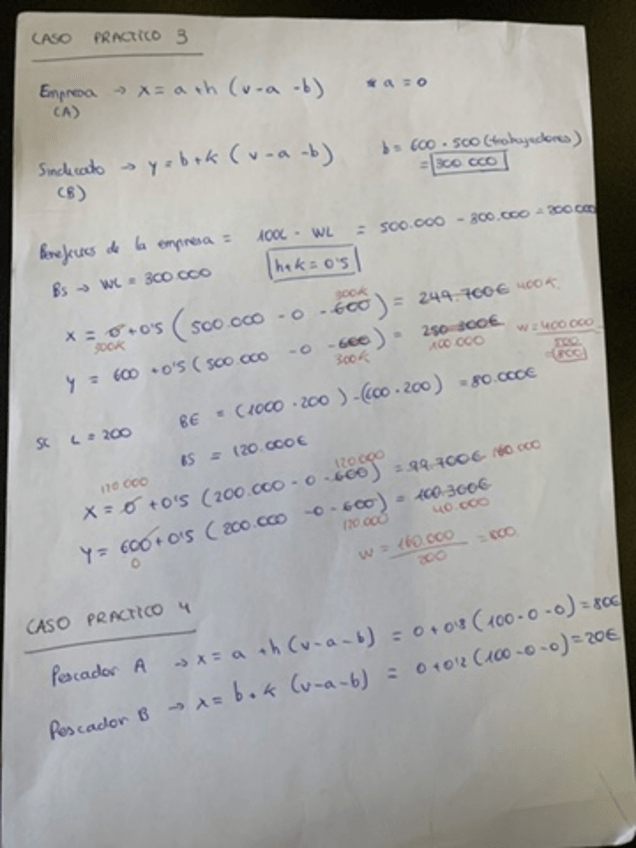 CASO PRACTICO 3
Empresa → x = a + h (v - a - b) * a = 0
(A)
Sindicato → y = b + k (v - a - b) b = 600 · 500 (trabajadores)
(B) = 300 000
Beneficios de la empresa = 100L - WL = 500.000 - 300.000 = 200.000
BS → WL = 300.000 h+k = 0'5
300K
X = 0 + 0'5 (500.000 - 0 - 600) = 249.700€ 400K
300K
Y = 600 + 0'5 (500.000 - 0 - 600) = 250.300€ W = 400.000
300K 100.000 500
= 800
Si L = 200 BE = (1000 · 200) - (600 · 200) = 80.000€
BS = 120.000€
120.000 120.000
X = 0 + 0'5 (200.000 - 0 - 600) = 99.700€ 160.000
Y = 600 + 0'5 (200.000 - 0 - 600) = 100.300€
0 120.000 40.000
W = 160.000 = 800
200
CASO PRACTICO 4
Pescador A → x = a + h (v - a - b) = 0 + 0'8 (100 - 0 - 0) = 80€
Pescador B → x = b + k (v - a - b) = 0 + 0'2 (100 - 0 - 0) = 20€